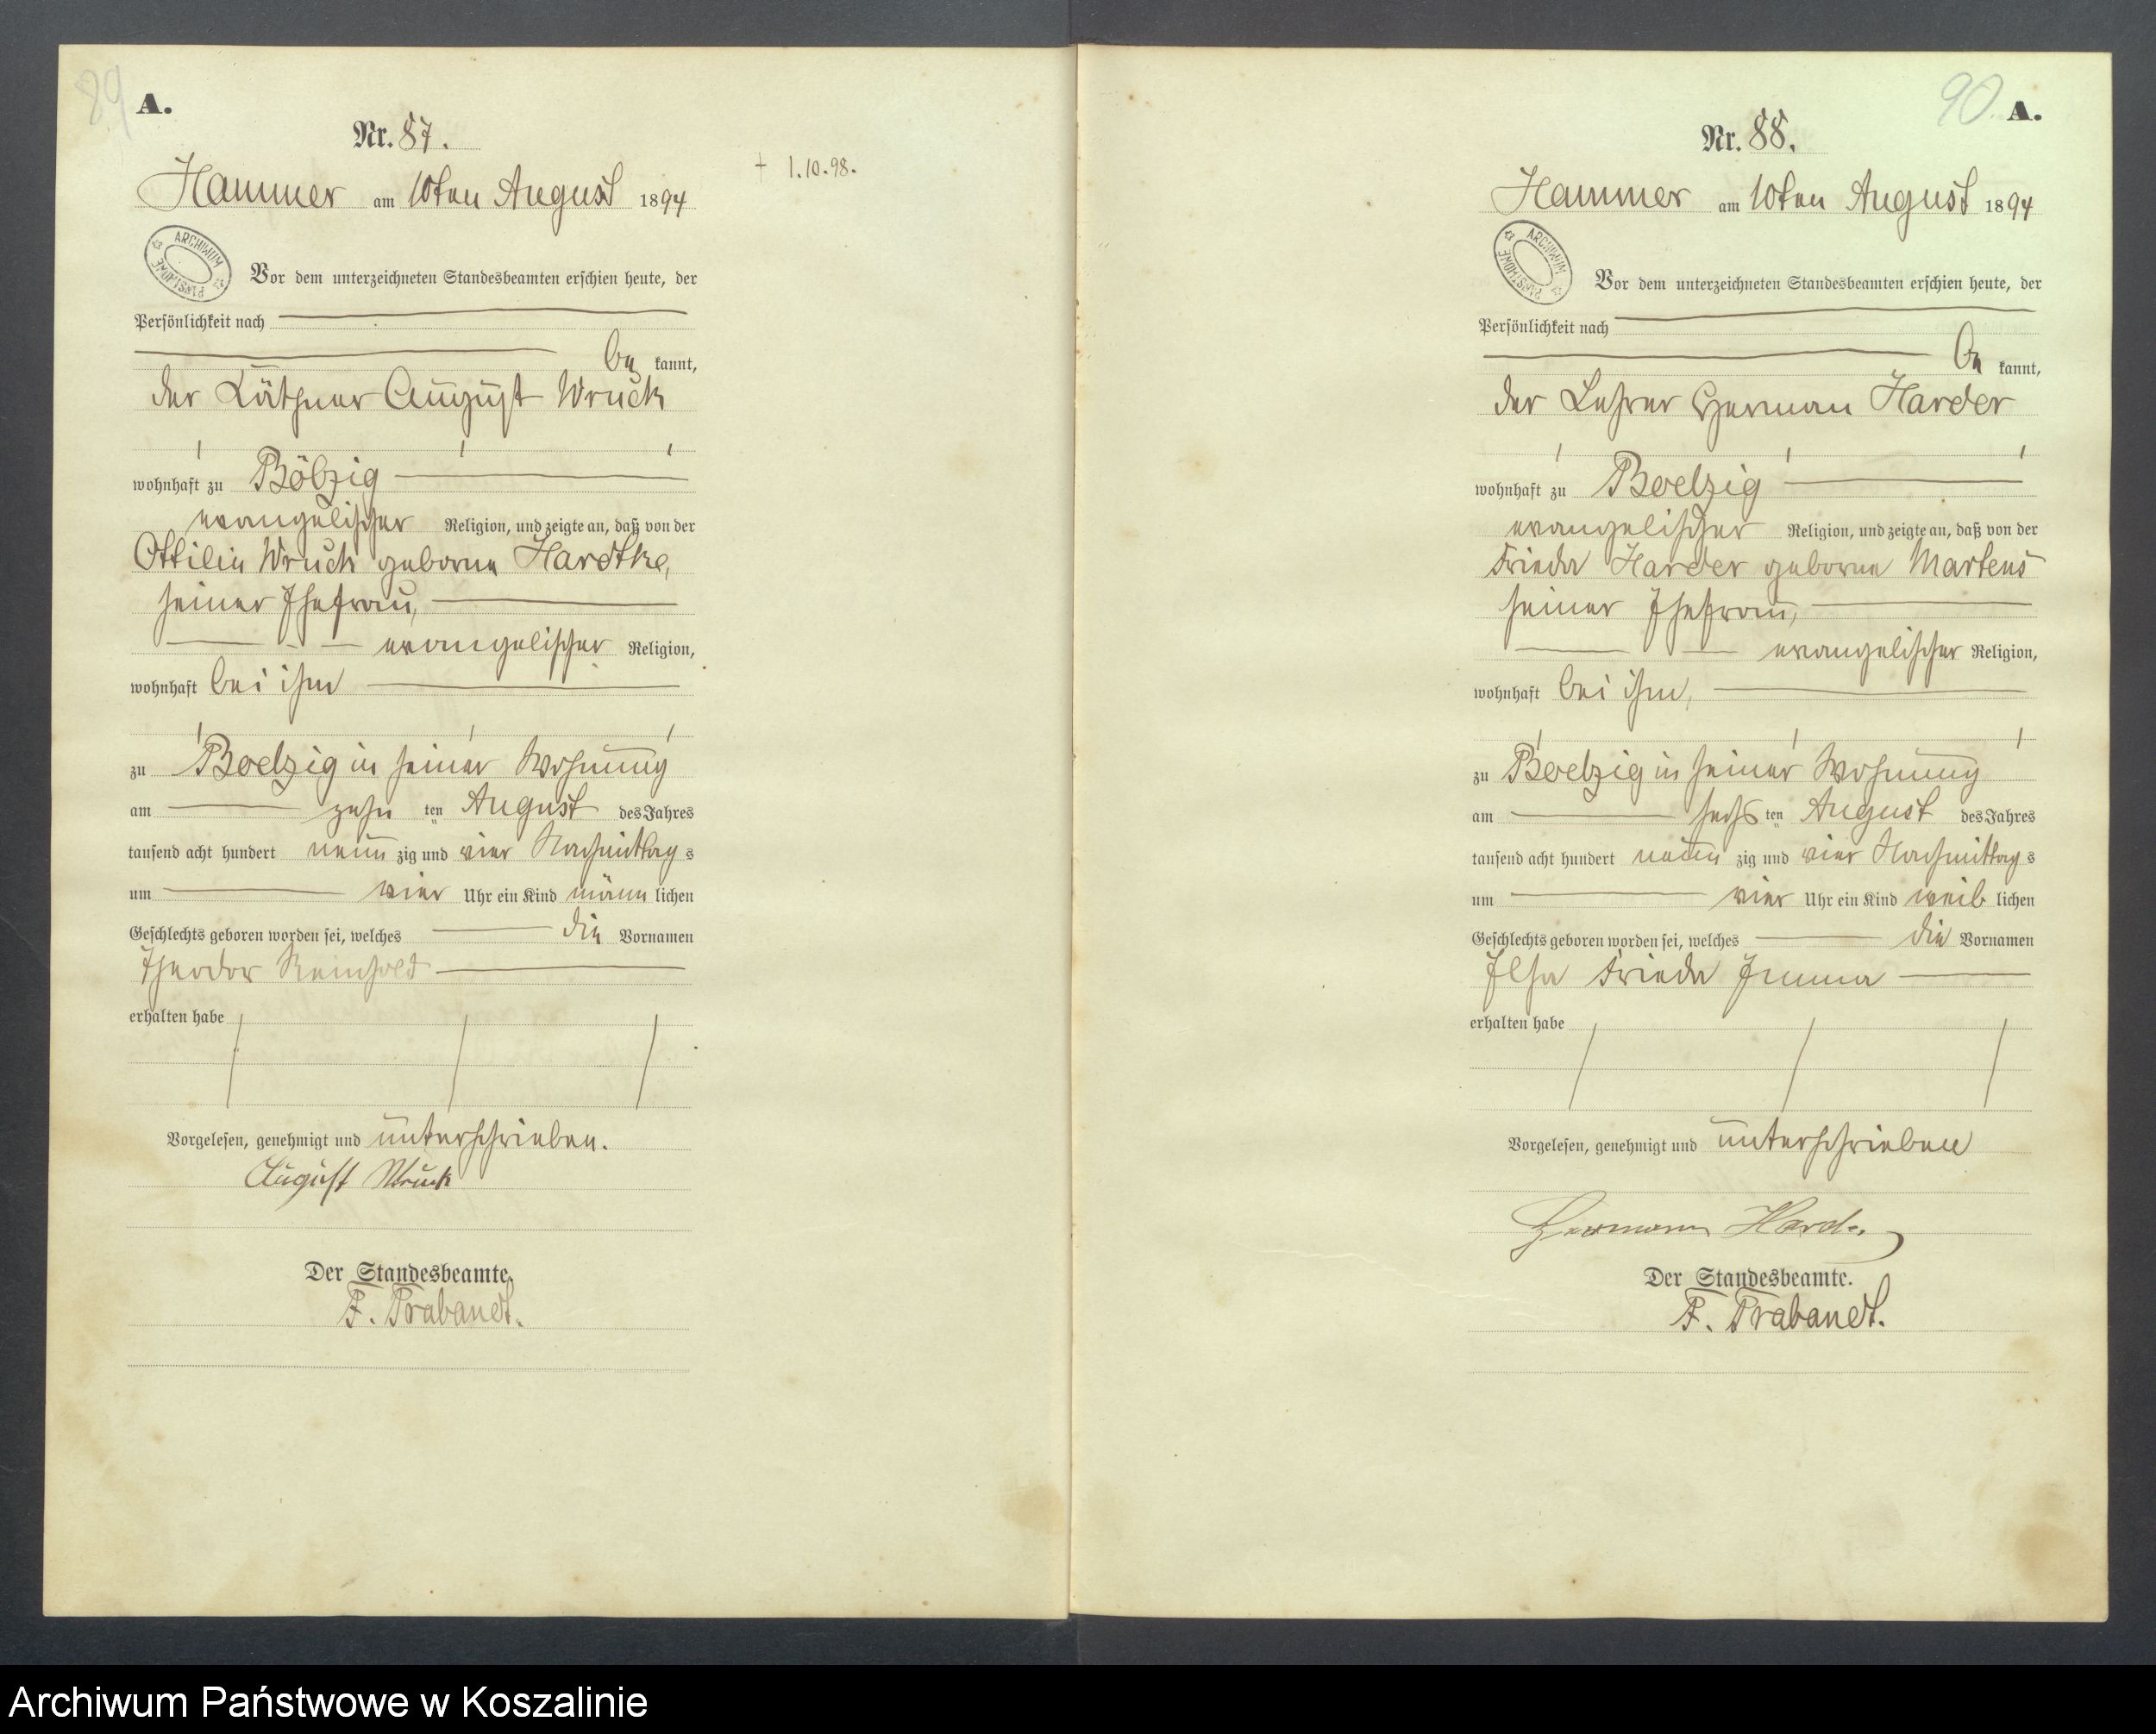 89
A.
Nr. 87.
† 1.10.98.
Hammer am 10ten August 1894
ARCHIWUM
PAŃSTWOWE
Vor dem unterzeichneten Standesbeamten erschien heute, der
Persönlichkeit nach
be kannt,
der Käthner August Wruck
wohnhaft zu Bölzig
evangelischer Religion, und zeigte an, daß von der
Ottilie Wruck geborne Hardtke,
seiner Ehefrau,
evangelischer Religion,
wohnhaft bei ihm
zu Boelzig in seiner Wohnung
am zehn ten August des Jahres
tausend acht hundert neun zig und vier Nachmittag s
um vier Uhr ein Kind männ lichen
Geschlechts geboren worden sei, welches die Vornamen
Theodor Reinhold
erhalten habe
Vorgelesen, genehmigt und unterschrieben.
August Wruck
Der Standesbeamte.
F. Trabandt.
90
A.
Nr. 88.
Hammer am 10ten August 1894
ARCHIWUM
PAŃSTWOWE
Vor dem unterzeichneten Standesbeamten erschien heute, der
Persönlichkeit nach
be kannt,
der Lehrer Herman Harder
wohnhaft zu Boelzig
evangelischer Religion, und zeigte an, daß von der
Frieda Harder geborne Martens
seiner Ehefrau,
evangelischer Religion,
wohnhaft bei ihm,
zu Boelzig in seiner Wohnung
am sechs ten August des Jahres
tausend acht hundert neun zig und vier Nachmittag s
um vier Uhr ein Kind weib lichen
Geschlechts geboren worden sei, welches die Vornamen
Elsa Frieda Emma
erhalten habe
Vorgelesen, genehmigt und unterschrieben
Hermann Harder
Der Standesbeamte.
F. Trabandt.
Archiwum Państwowe w Koszalinie